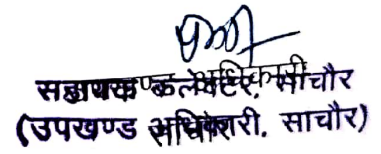 सहायक कलेक्टर, सांचौर
(उपखण्ड अधिकारी. साचौर)